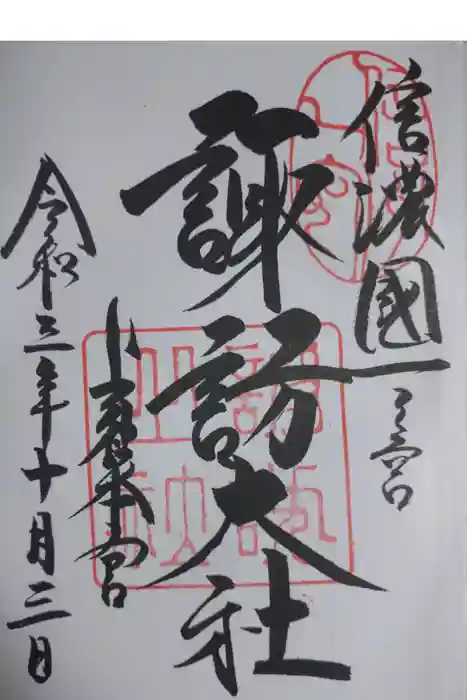 信濃國一之宮
諏訪大社
上社本宮
令和三年十月三日